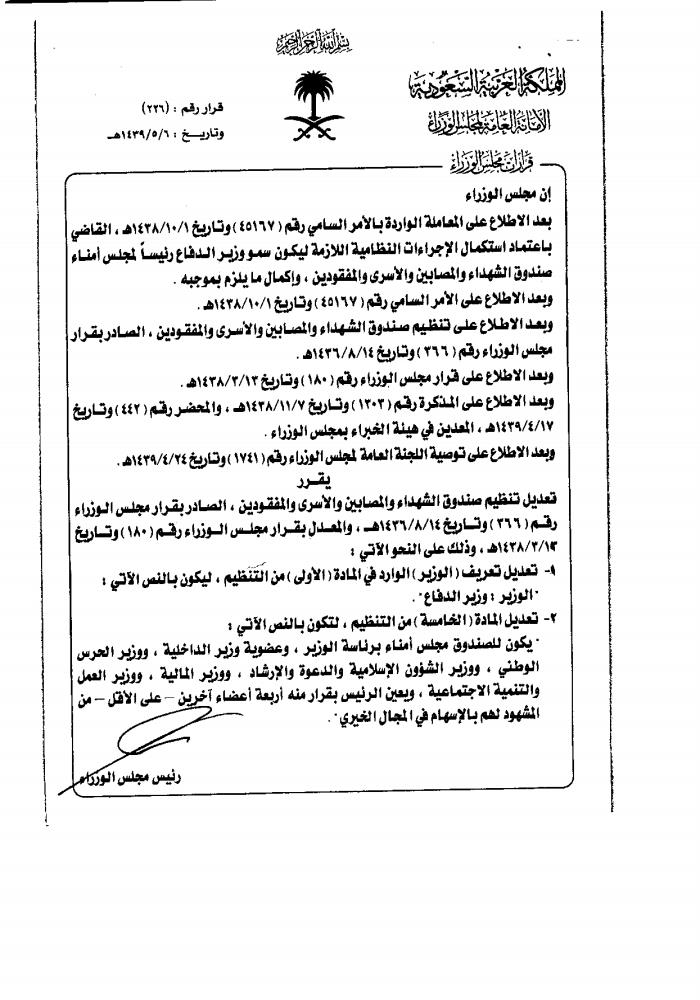 بسم الله الرحمن الرحيم
المملكة العربية السعودية
الأمانة العامة لمجلس الوزراء
قرار رقم : (٢٣٦)
وتاريخ : ١٤٣٩/٥/٦هـ
قرارات مجلس الوزراء
إن مجلس الوزراء
بعد الاطلاع على المعاملة الواردة بالأمر السامي رقم (٤٥١٦٧) وتاريخ ١٤٣٨/١٠/١هـ ، القاضي
باعتماد استكمال الإجراءات النظامية اللازمة ليكون سمو وزير الدفاع رئيساً لمجلس أمناء
صندوق الشهداء والمصابين والأسرى والمفقودين ، وإكمال ما يلزم بموجبه .
وبعد الاطلاع على الأمر السامي رقم (٤٥١٦٧) وتاريخ ١٤٣٨/١٠/١هـ .
وبعد الاطلاع على تنظيم صندوق الشهداء والمصابين والأسرى والمفقودين ، الصادر بقرار
مجلس الوزراء رقم (٣٦٦) وتاريخ ١٤٣٦/٨/١٤هـ .
وبعد الاطلاع على قرار مجلس الوزراء رقم (١٨٠) وتاريخ ١٤٣٨/٣/١٣هـ .
وبعد الاطلاع على المذكرة رقم (١٣٠٣) وتاريخ ١٤٣٨/١١/٧هـ ، والمحضر رقم (٤٤٢) وتاريخ
١٤٣٩/٤/١٧هـ ، المعدين في هيئة الخبراء بمجلس الوزراء .
وبعد الاطلاع على توصية اللجنة العامة لمجلس الوزراء رقم (١٧٤١) وتاريخ ١٤٣٩/٤/٢٤هـ .
يقرر
تعديل تنظيم صندوق الشهداء والمصابين والأسرى والمفقودين ، الصادر بقرار مجلس الوزراء
رقم (٣٦٦) وتاريخ ١٤٣٦/٨/١٤هـ ، والمعدل بقرار مجلس الوزراء رقم (١٨٠) وتاريخ
١٤٣٨/٣/١٣هـ ، وذلك على النحو الآتي :
١- تعديل تعريف (الوزير) الوارد في المادة (الأولى) من التنظيم ، ليكون بالنص الآتي :
"الوزير : وزير الدفاع" .
٢- تعديل المادة (الخامسة) من التنظيم ، لتكون بالنص الآتي :
"يكون للصندوق مجلس أمناء برئاسة الوزير ، وعضوية وزير الداخلية ، ووزير الحرس
الوطني ، ووزير الشؤون الإسلامية والدعوة والإرشاد ، ووزير المالية ، ووزير العمل
والتنمية الاجتماعية ، ويعين الرئيس بقرار منه أربعة أعضاء آخرين – على الأقل – من
المشهود لهم بالإسهام في المجال الخيري" .
رئيس مجلس الوزراء